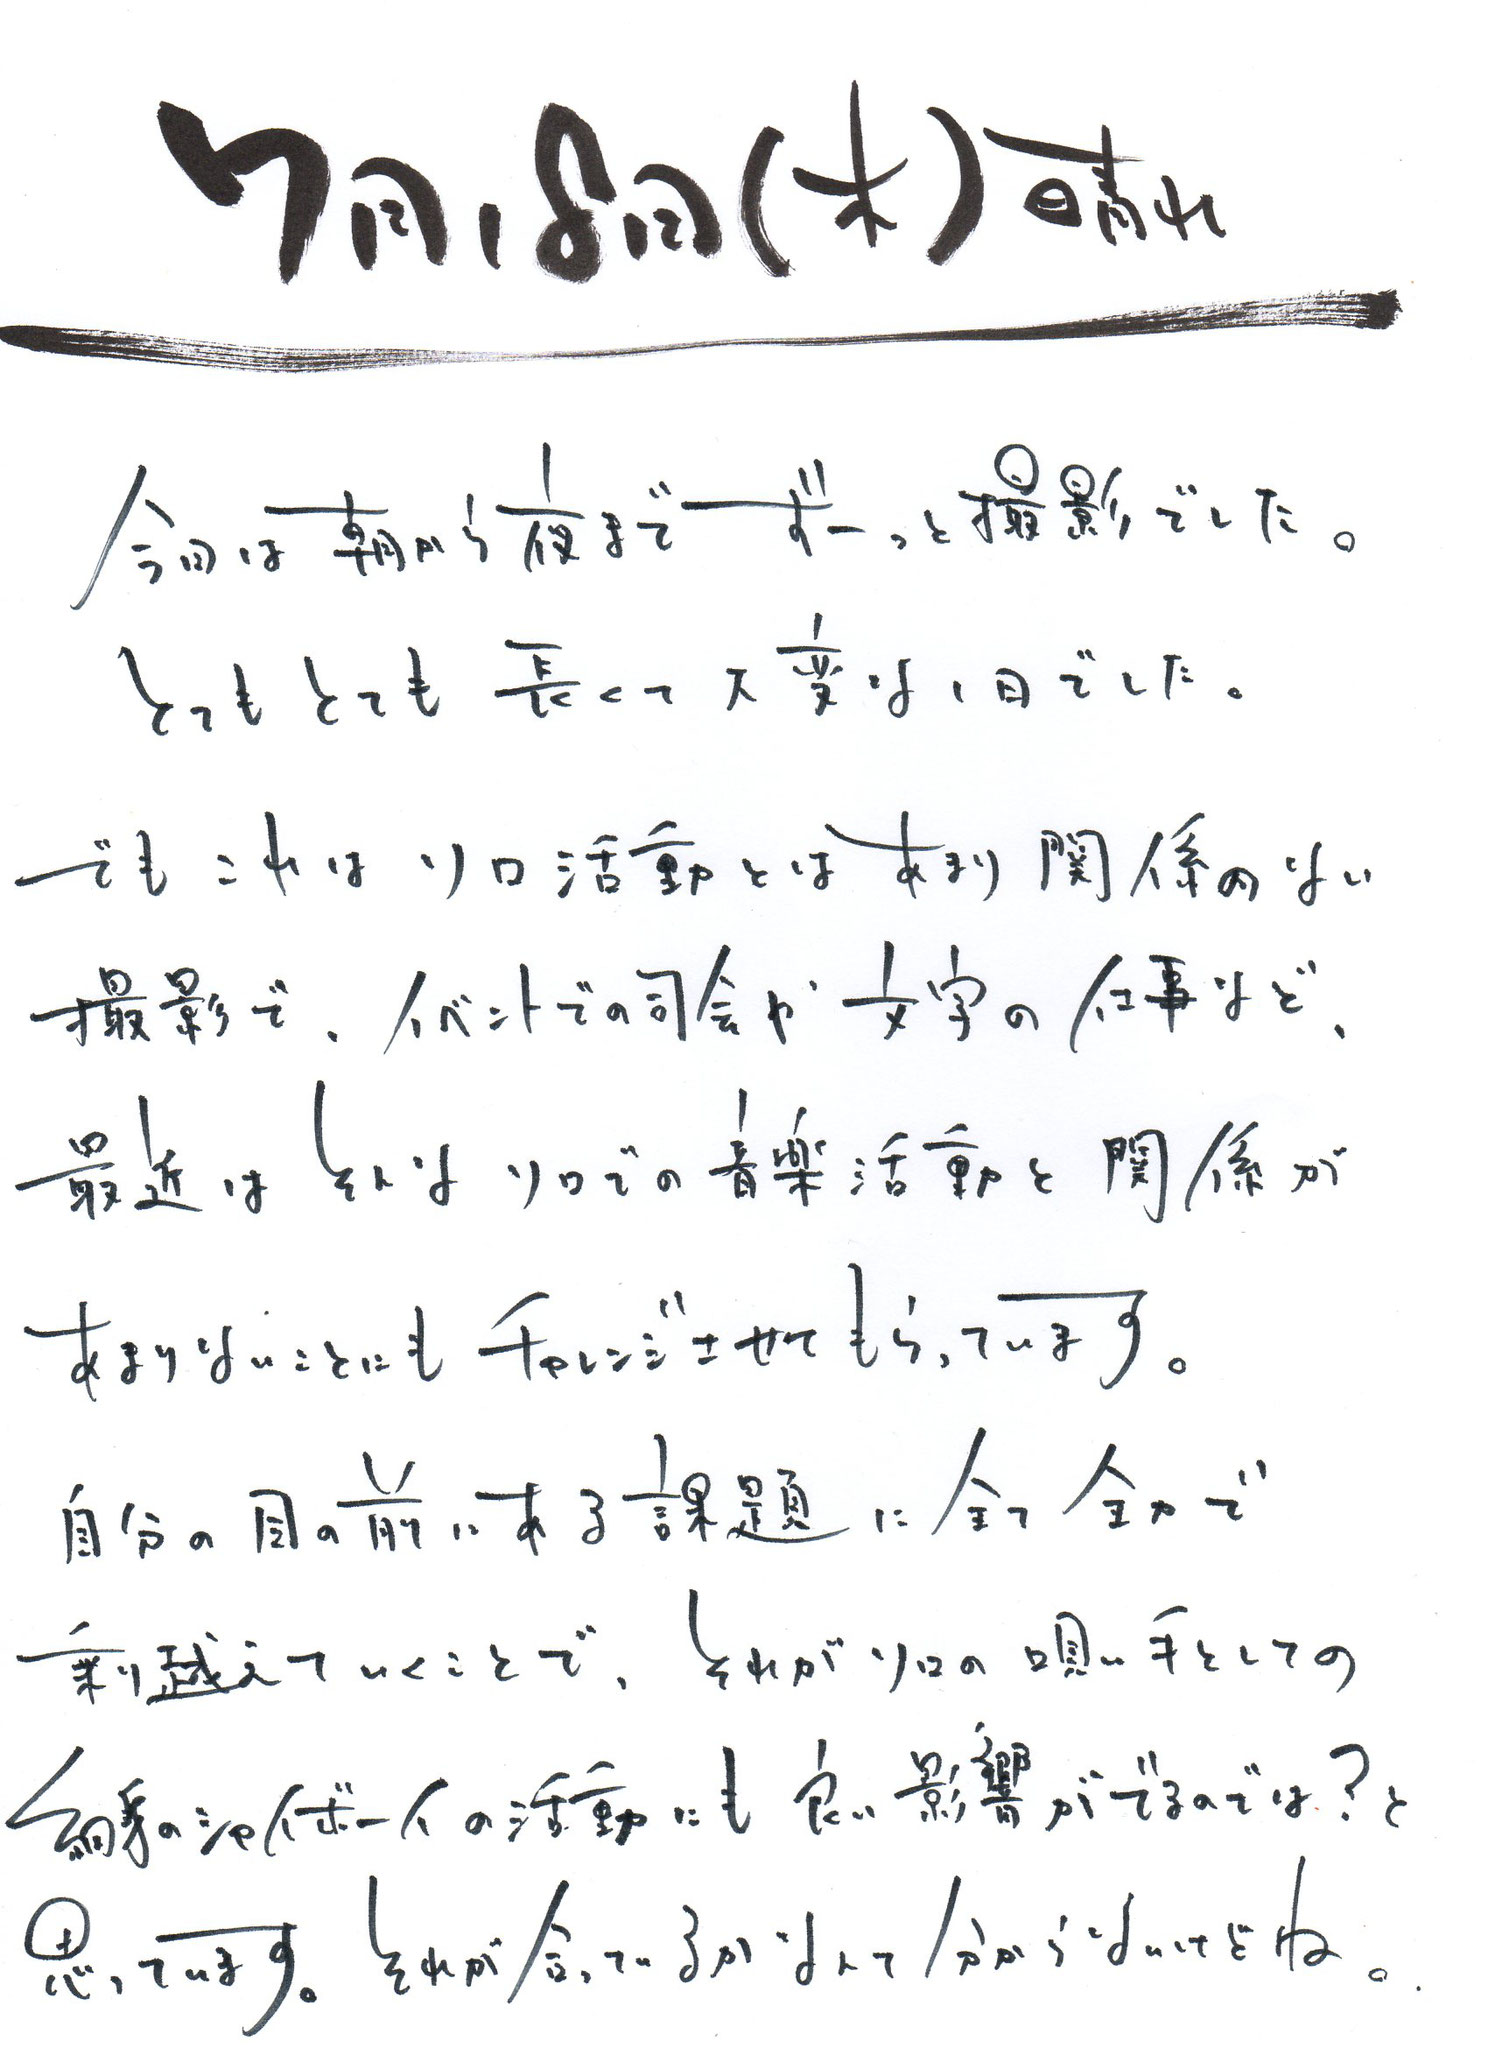 7月18日(木)晴れ
今日は朝から夜までずーっと撮影でした。
とてもとても長くて大変な1日でした。
でもこれはソロ活動とはあまり関係のない
撮影で、イベントでの司会や文字の仕事など、
最近はそんなソロでの音楽活動と関係が
あまりないことにもチャレンジさせてもらっています。
自分の目の前にある課題に全て全力で
乗り越えていくことで、それがソロの唄い手としての
細身のシャイボーイの活動にも良い影響がでるのでは?と
思っています。それが合っているかなんて分からないけどね。